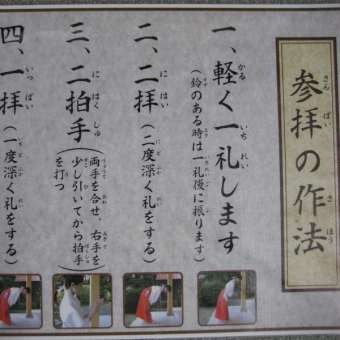 参拝の作法
一、軽く一礼します
（鈴のある時は一礼後に振ります）
二、二拝（二度深く礼をする）
三、二拍手（両手を合せ、右手を
少し引いてから拍手
を打つ）
四、一拝（一度深く礼をする）